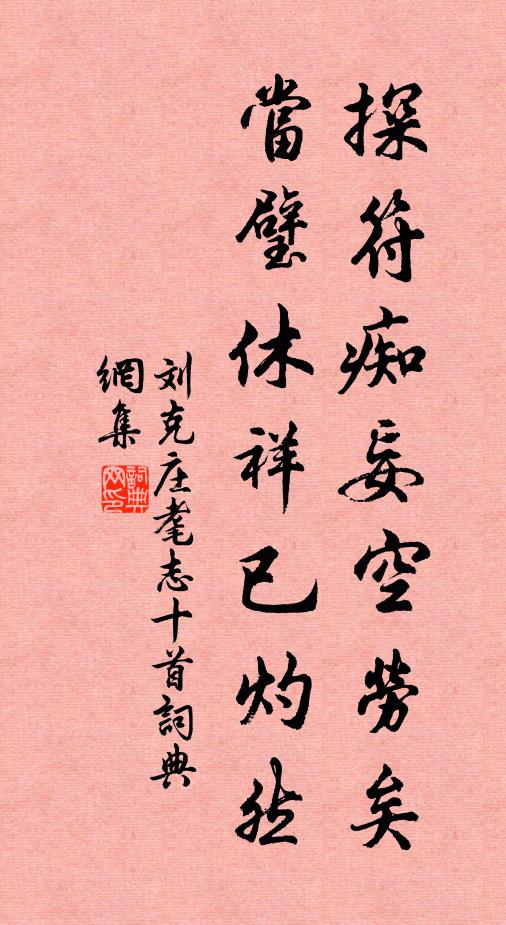 探符痴妄空勞矣
當璧休祥已灼然
刘克庄耄志十首詞典
網集
詞典網印